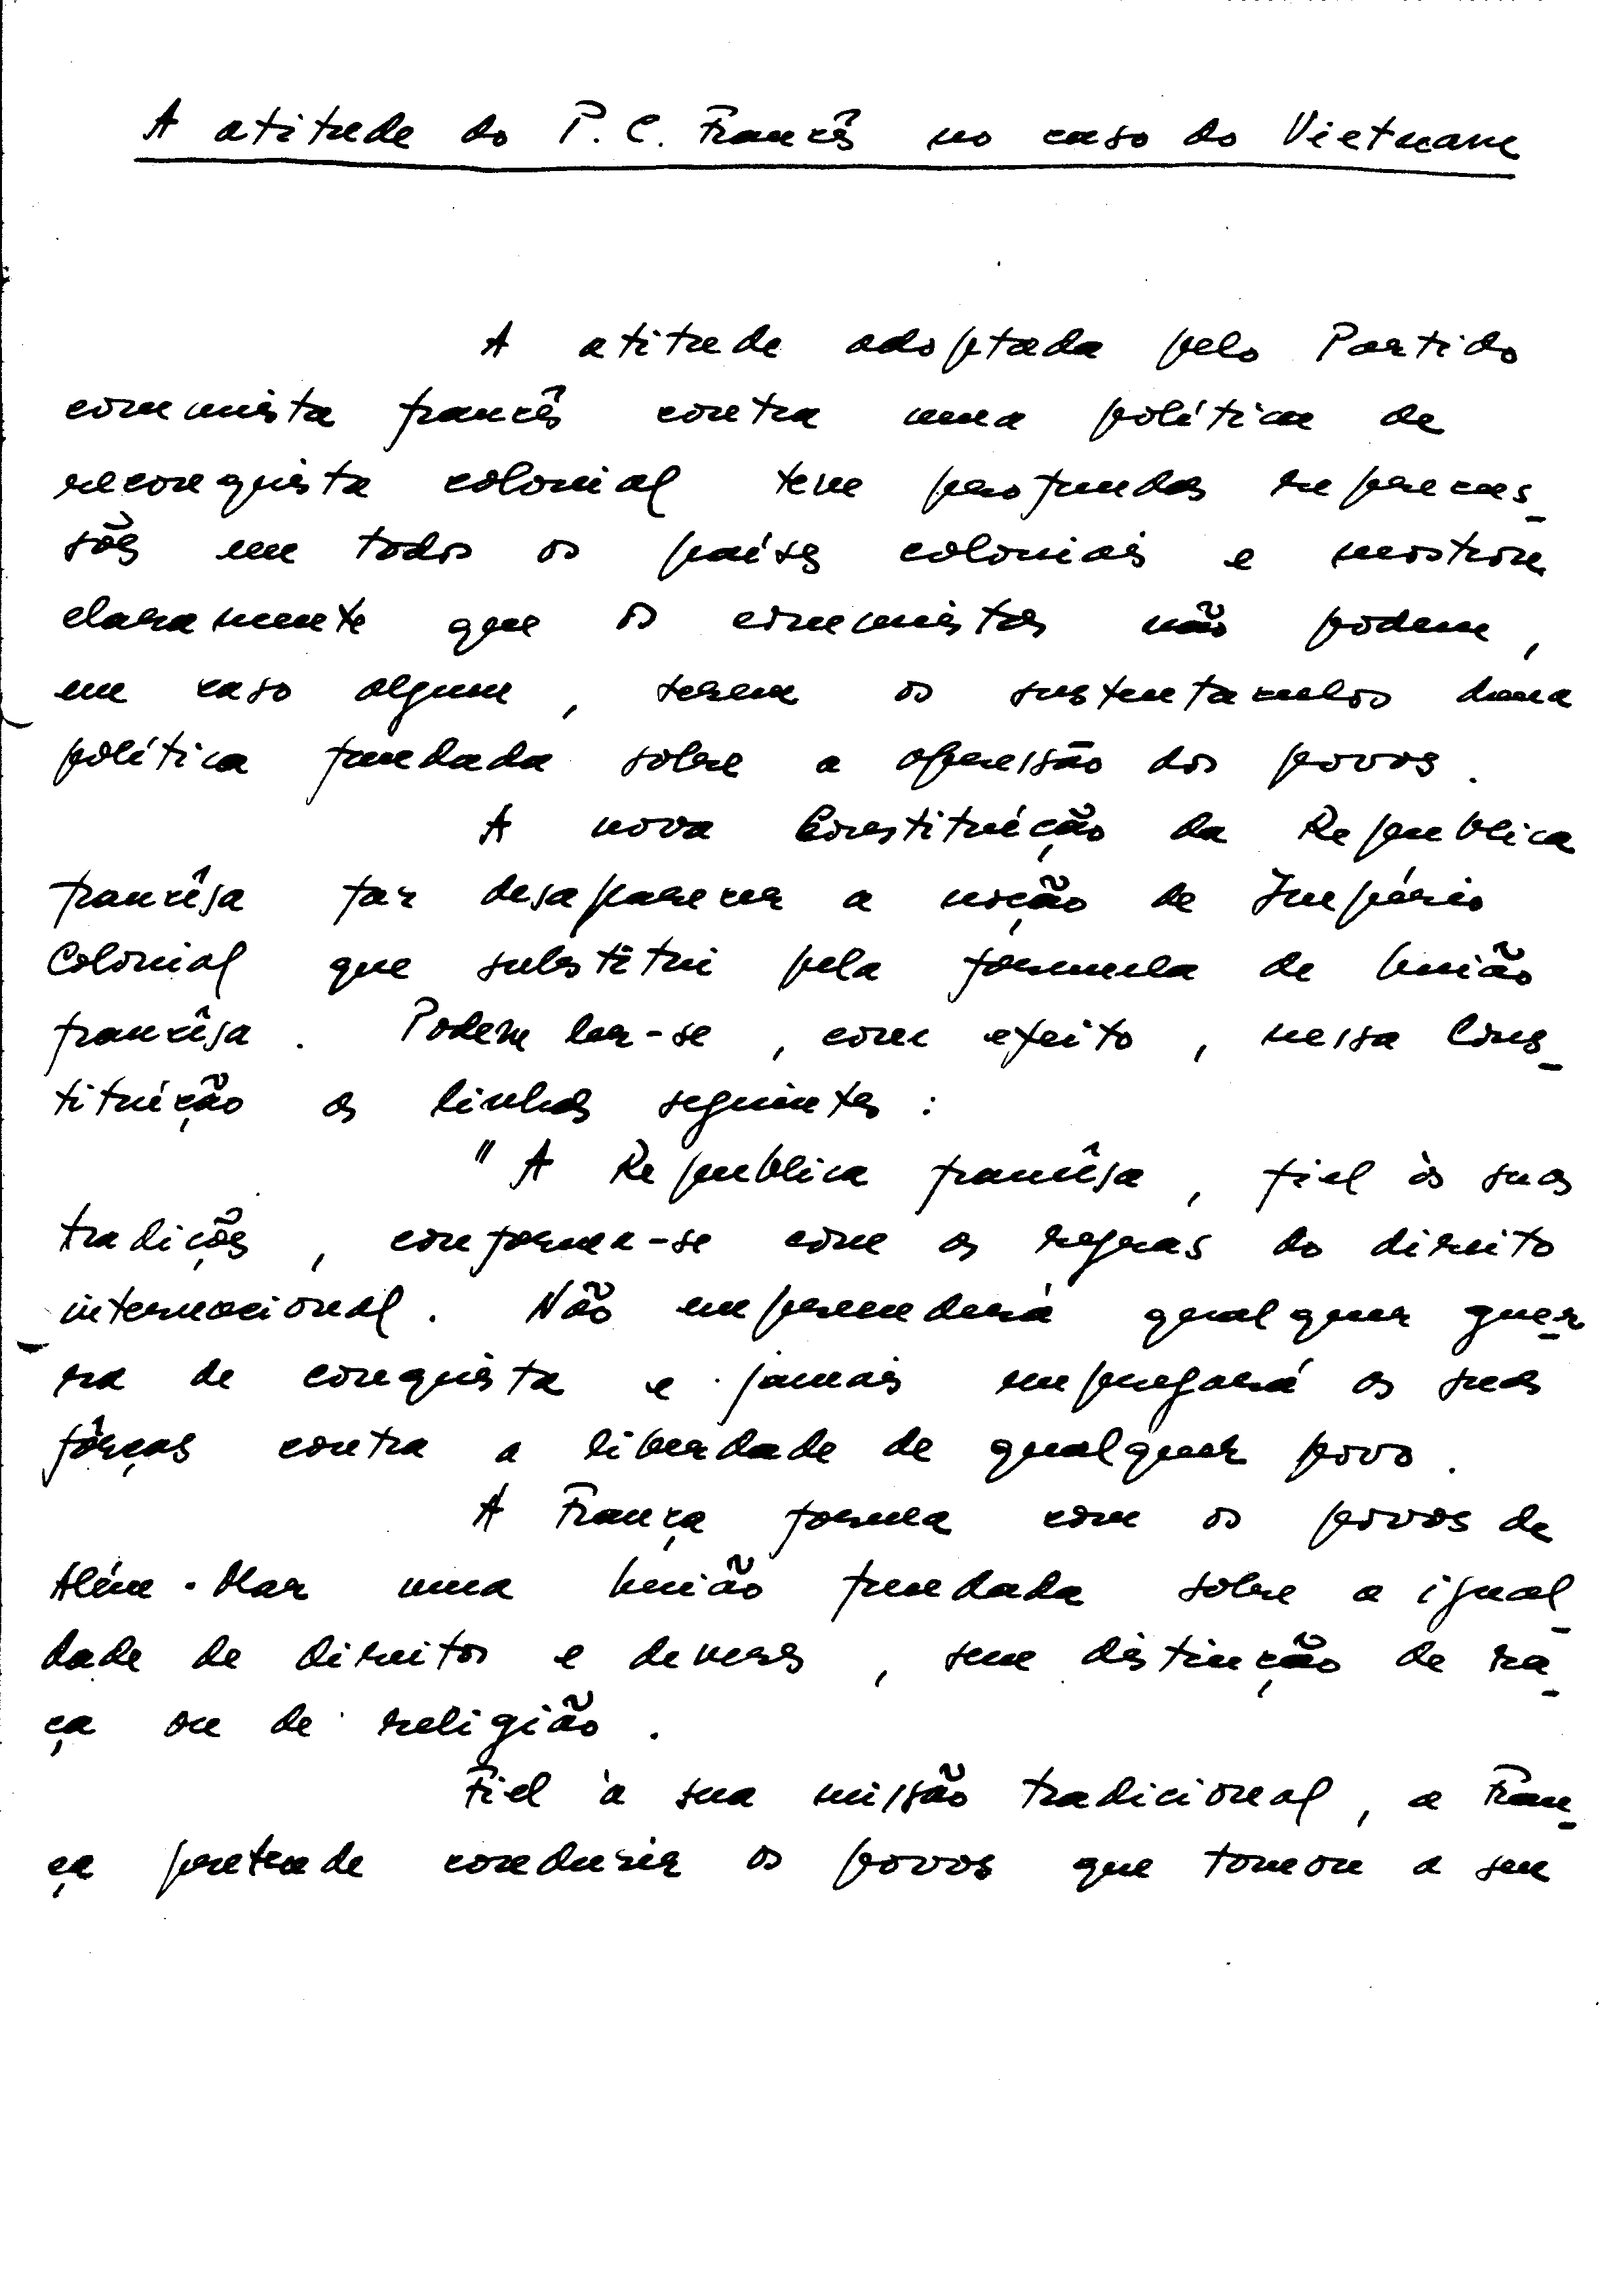 A atitude do P. C. Francês no caso do Vietnam
A atitude adoptada pelo Partido
comunista francês contra uma política de
reconquista colonial teve profundas repercus-
sões em todos os países coloniais e mostrou
claramente que os comunistas não podem,
em caso algum, serem os sustentaculos duma
política fundada sobre a opressão dos povos.
A nova Constituíção da Republica
francêsa faz desaparecer a noção de Império
Colonial que substitui pela fórmula de União
francêsa. Podem ler-se, com efeito, nessa Cons-
tituíção as linhas seguintes:
"A Republica francêsa, fiel às suas
tradições, conforma-se com as regras do direito
internacional. Não empreenderá qualquer guer-
ra de conquista e jamais empregará as suas
fôrças contra a liberdade de qualquer povo.
A França forma com os povos de
Além-Mar uma União fundada sobre a igual-
dade de direitos e deveres, sem distinção de ra-
ça ou de religião.
Fiel à sua missão tradicional, a Fran-
ça pretende conduzir os povos que tomou a seu